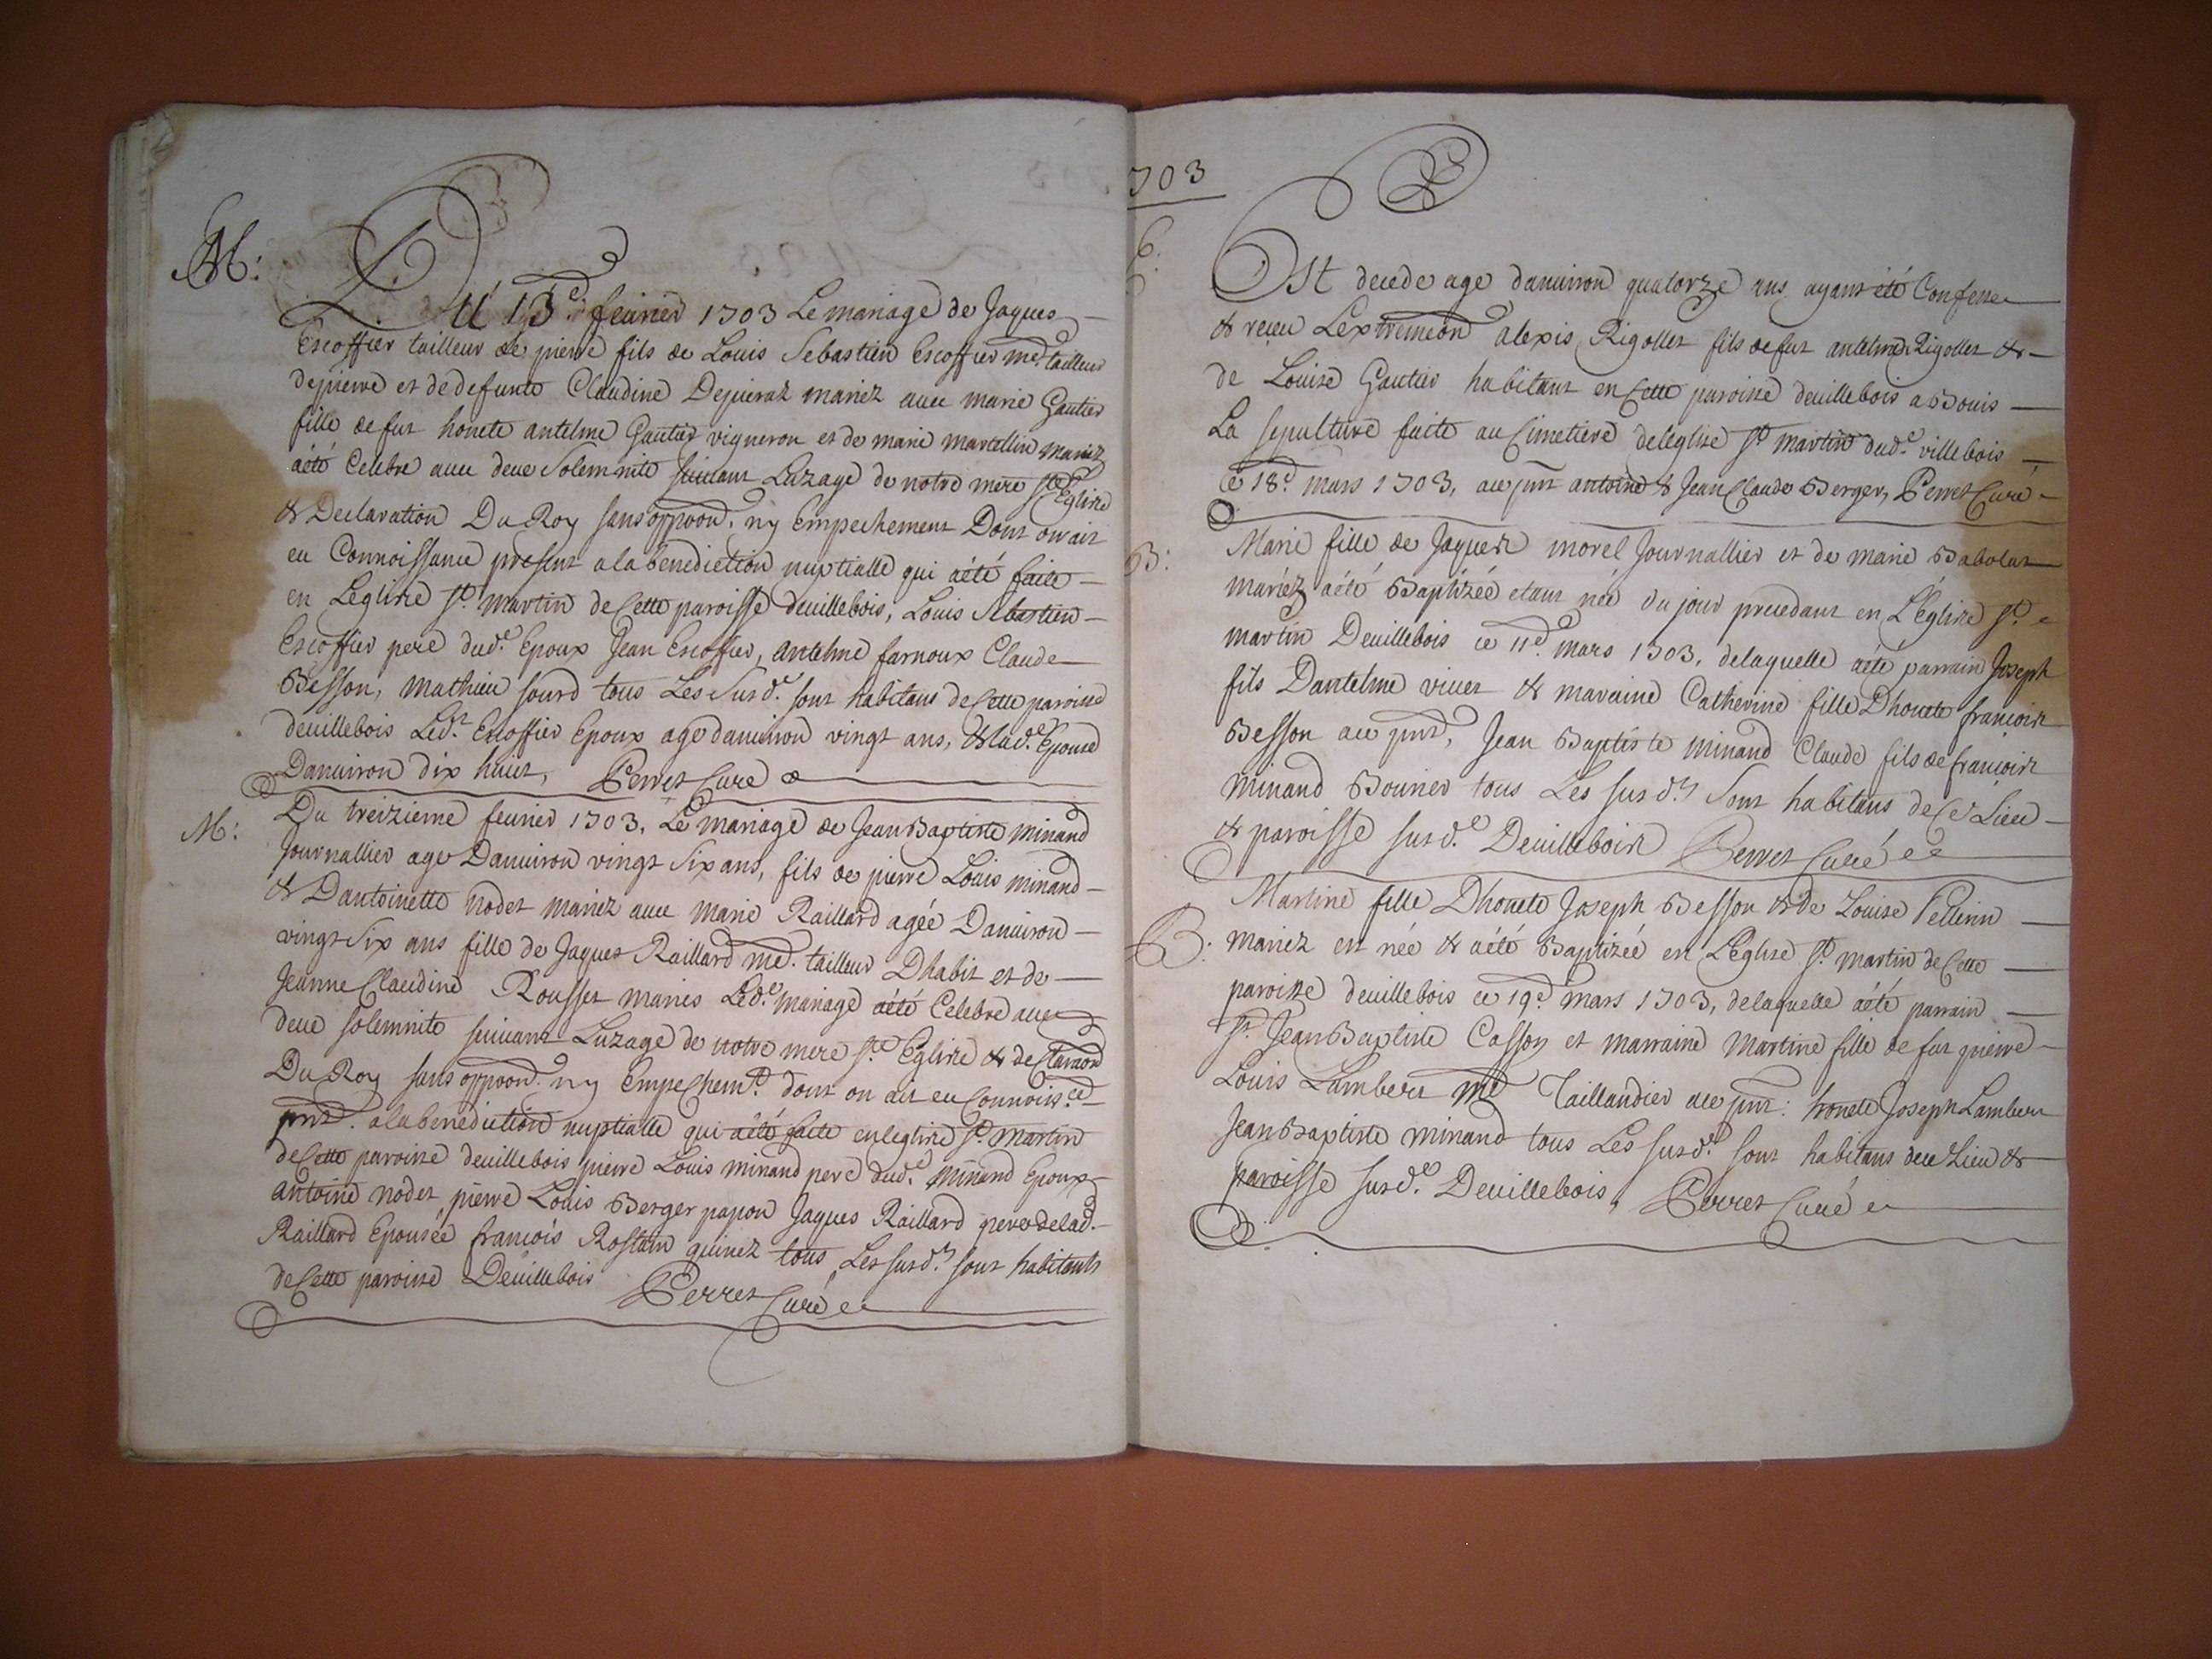 M:
Du 13e: feurier 1703 Le mariage de Jaques
Escoffier tailleur de pierre fils de Louis Sebastien Escoffier md. tailleur
de pierre et de defunte Claudine Depieraz mariez auec marie Gautier
fille de fut honete antelme Gautier vigneron et de marie marcellin mariez
a été Celebre auec deue Solemnite suiuant Luzage de notre mere ste Eglize
& Declaration Du Roy sans oppoon. ny Empechement Dont on ait
eu Connoissance present a la benediction nuptialle qui a été faite
en L'eglize st. martin de Cette paroisse deuillebois, Louis Sebastien
Escoffier pere dud.e Epoux Jean Escoffier, antelme farnoux Claude
Besson, mathieu sourd tous Les Susd.e sont habitans de Cette paroisse
deuillebois Led.t Escoffier Epoux age danuiron vingt ans, & lad.e Epouse
Danuiron dix huit, Perret Curé
M:
Du treizieme feurier 1703. Le mariage de Jean Baptiste minand
Journallier age Danuiron vingt Six ans, fils de pierre Louis minand
& Dantoinette nodet mariez auec Marie Raillard agée Danuiron
vingt Six ans fille de Jaques Raillard md. tailleur Dhabit et de
Jeanne Claudine Rousset mariés Led.e mariage a été Celebre auec
deue solemnite suiuant Luzage de notre mere ste. Eglize & declaraon
Du Roy sans oppoon. ny Empechemt. dont on ait eu Connoiss.ce
pnt. a la benediction nuptialle qui a été faite en leglize st. Martin
de Cette paroisse deuillebois pierre Louis minand pere dud.e Minand Epoux
antoine nodet, pierre Louis Berger papon Jaques Raillard pere de lad.
Raillard Epousée, francois Rostain guinez tous Les susd.s sont habitants
de Cette paroisse Deuillebois Perret Curé
1703
Est decede age danuiron quatorze ans ayant été Confessé
& receu Lextremeon alexis Rigollet fils de fut antelme Rigollet &
de Louise Gautier habitant en Cette paroisse deuillebois a Bouis
La sepulture faite au Cimetiere de leglise st. martin dud.e villebois
le 18.e mars 1703, au pnt antoine & Jean Claude Berger, Perret Curé
B:
Marie fille de Jaques morel Journallier et de marie Babolat
mariéz a été Baptizéé etant néé du jour precedant en L'Eglize st.
martin Deuillebois ce 11.e mars 1703, delaquelle a été parrain Joseph
fils Dantelme viuet & maraine Catherine fille Dhonete francois
Besson au pnt, Jean Baptiste minand Claude fils de francois
minand Bouuier tous Les susd.s Sont habitans de Ce Lieu
& paroisse susd.e Deuillebois Perret Curé
B:
Martine fille Dhonete Joseph Besson & de Louise Pellerin
mariez est née & a été Baptizéé en L'Eglise st. martin de Cette
paroisse deuillebois ce 19.e mars 1703, delaquelle a été parrain
sr. Jean Baptiste Casson et marraine Martine fille de fut pierre
Louis Lambert md Taillandier au pnt: honete Joseph Lambert
Jean Baptiste minand tous Les susd.s sont habitans de ce Lieu &
paroisse susd.e Deuillebois, Perret Curé